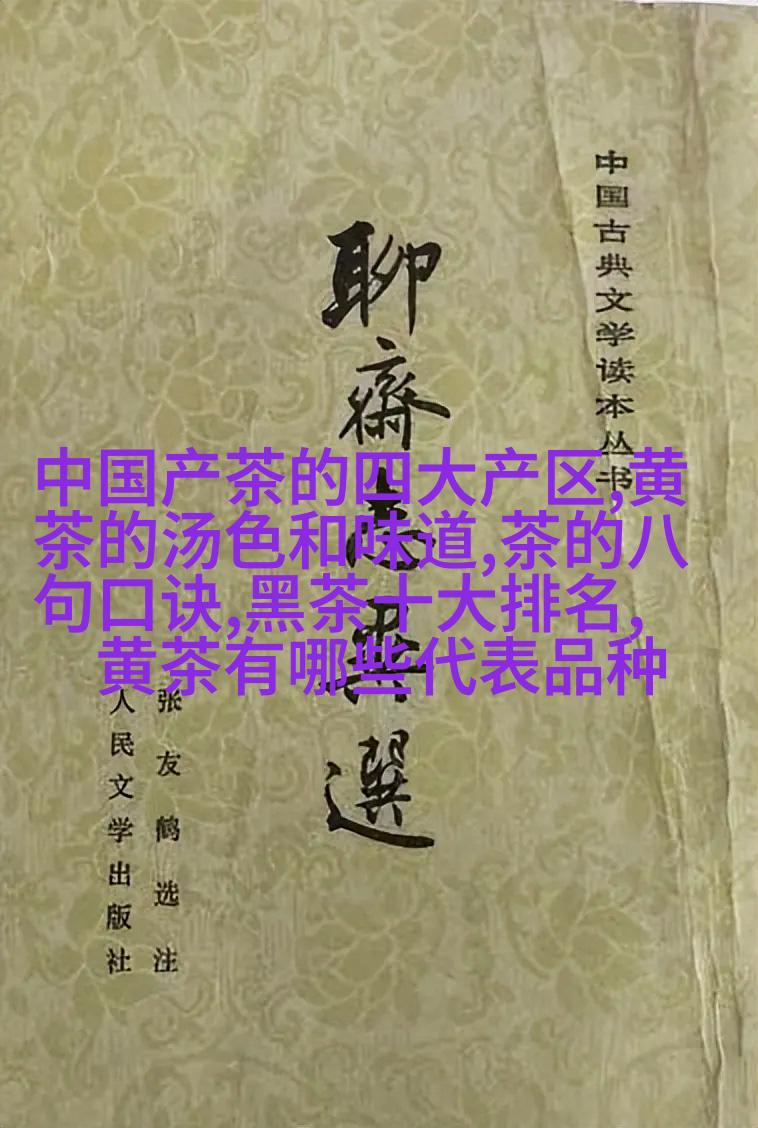 中国古典文学读本丛书
聊齋志異選
中国产茶的四大产区,黄
茶的汤色和味道,茶的八
句口诀,黑茶十大排名,
黄茶有哪些代表品种
张友鹤选注
人民文学出版社